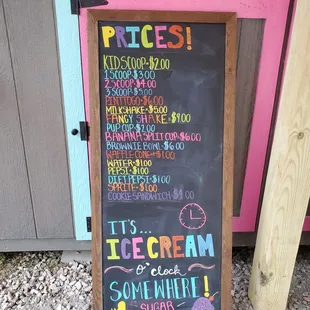 PRICES!
KID SCOOP • $2.00
1 SCOOP • $3.00
2 SCOOP • $4.00
3 SCOOP • $5.00
PINT TO GO • $6.00
MILKSHAKE • $5.00
FANCY SHAKE • $9.00
PUP CUP • $2.00
BANANA SPLIT CUP • $6.00
BROWNIE BOWL • $6.00
WAFFLE CONE • +$1.00
WATER • $1.00
PEPSI • $1.00
DIET PEPSI • $1.00
SPRITE • $1.00
COOKIE SANDWICH • $4.00
IT'S...
ICE CREAM
O'CLOCK
SOMEWHERE!
SUGAR